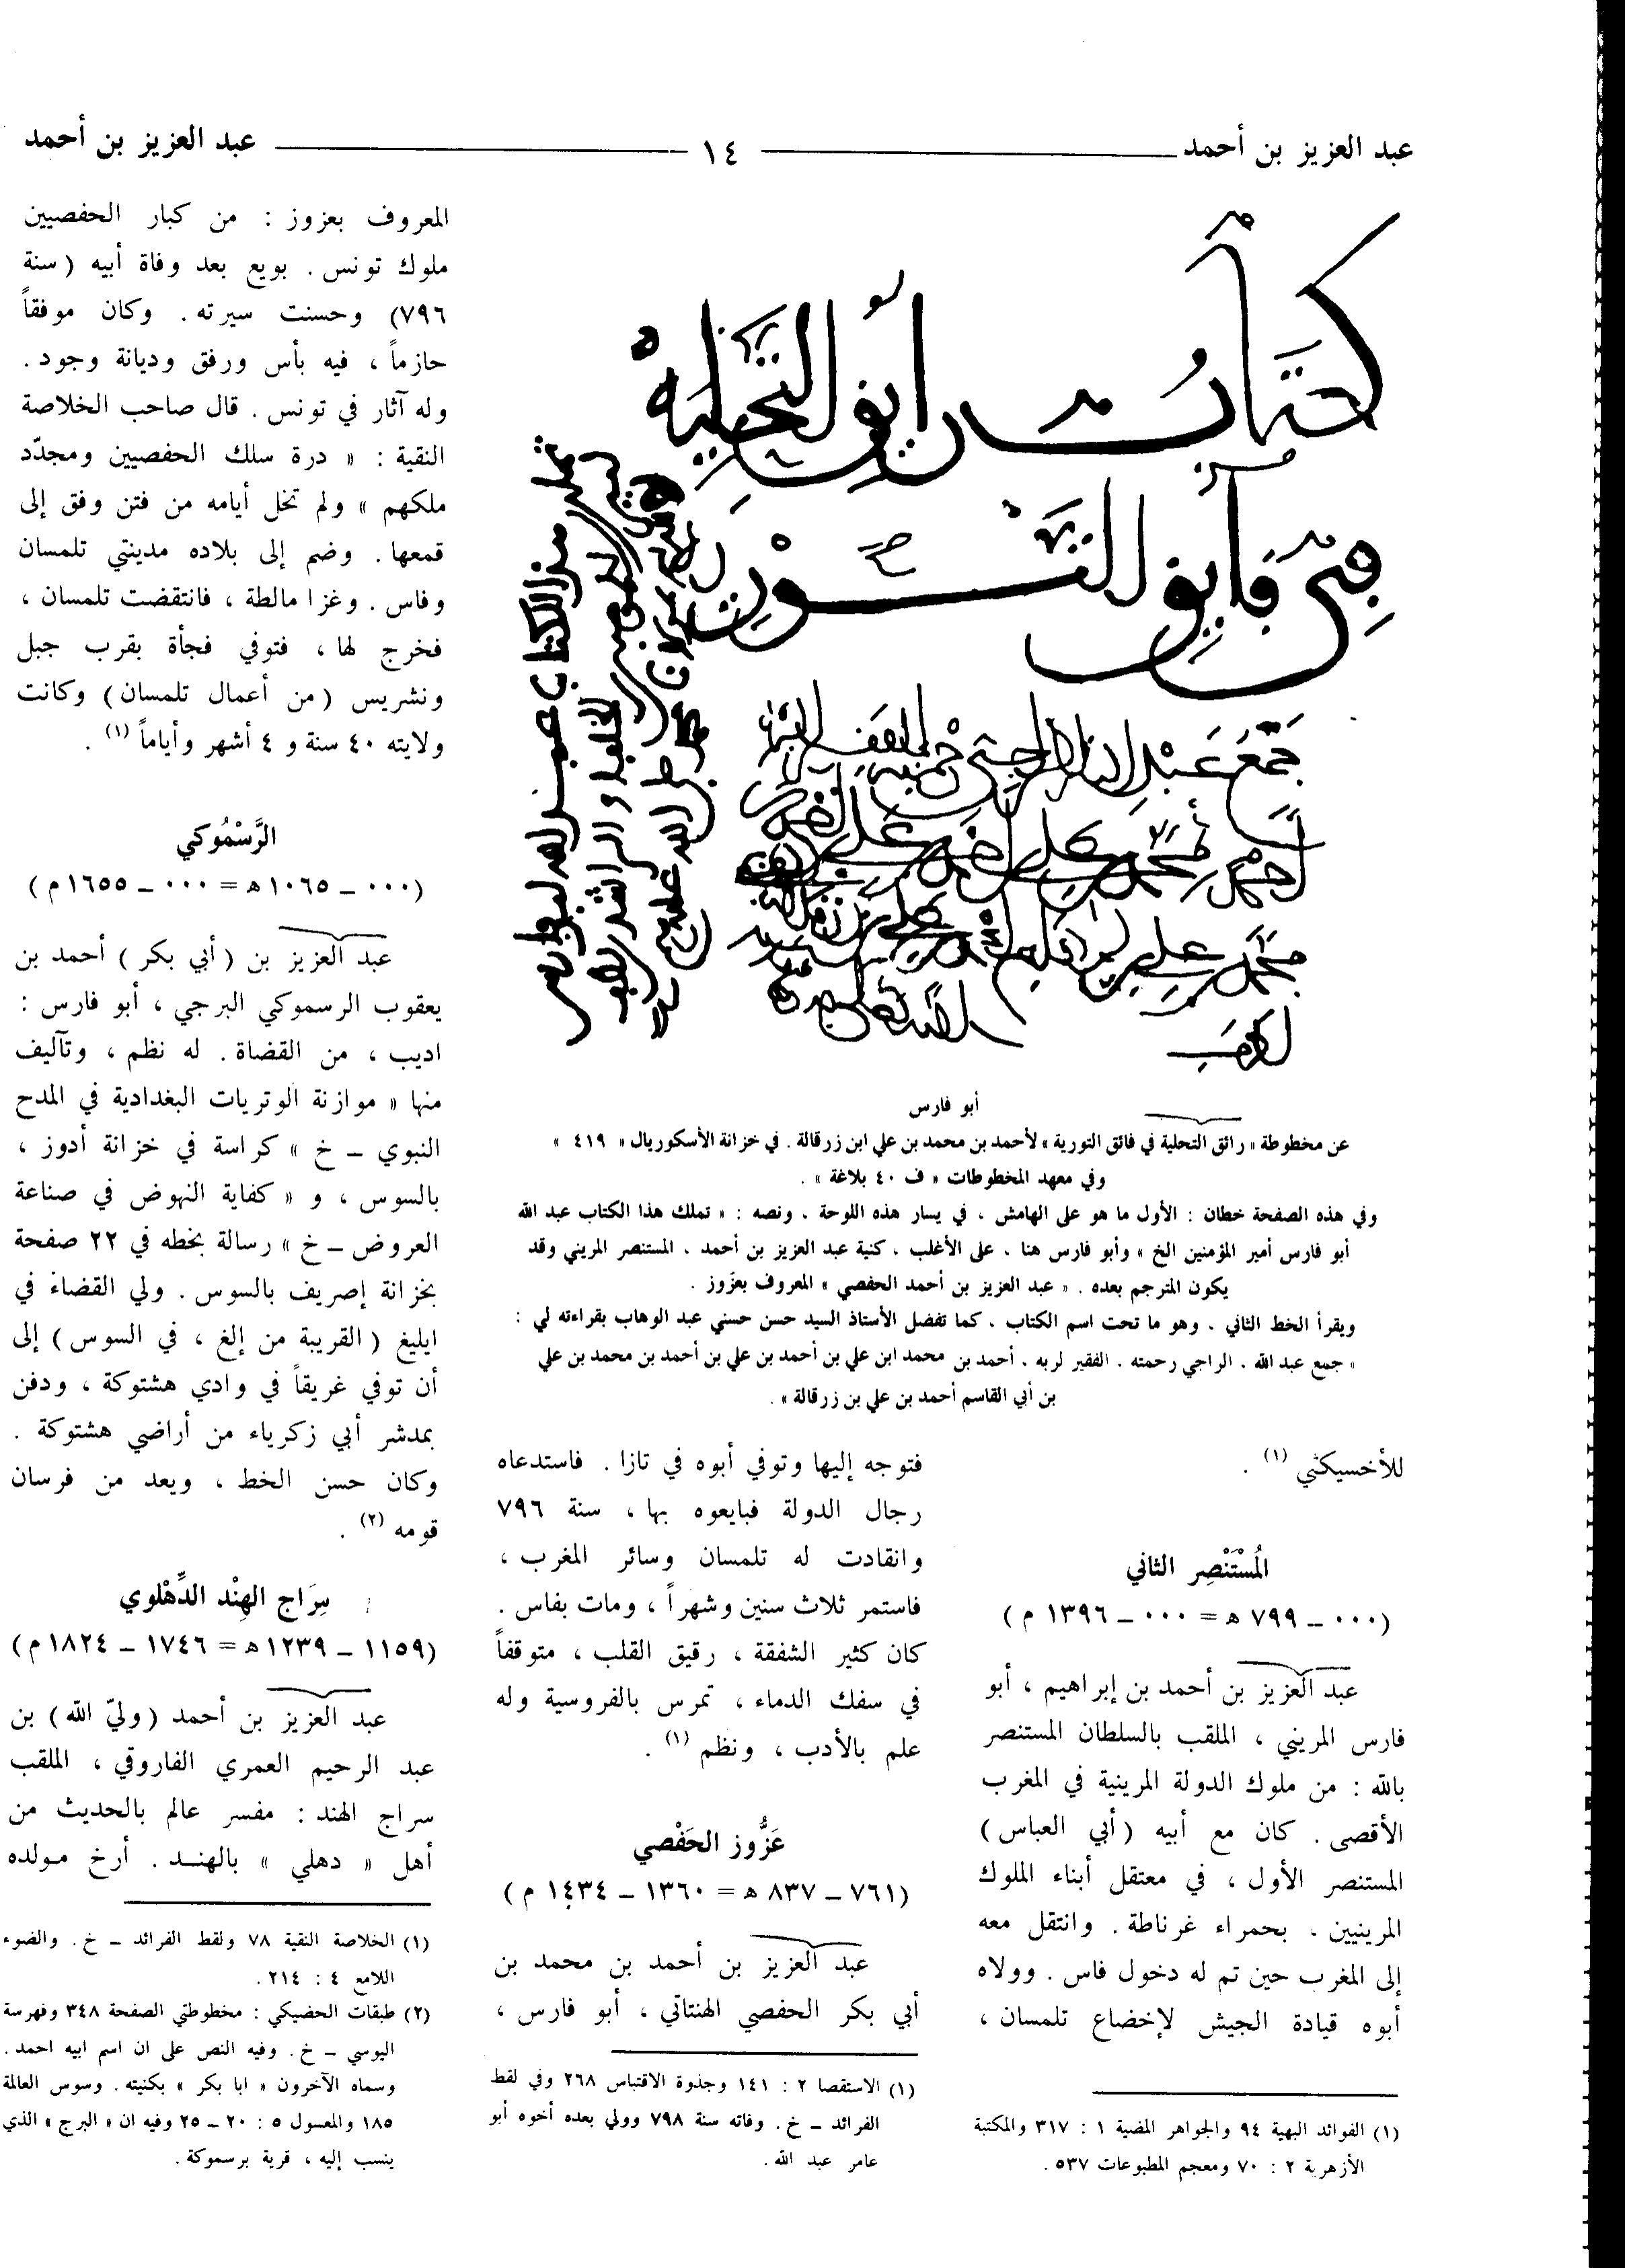 عبد العزيز بن أحمد
١٤
عبد العزيز بن أحمد
كتاب رايق التحلية
في فايق التورية
أبو فارس
عن مخطوطة « رائق التحلية في فائق التورية » لأحمد بن محمد بن علي ابن زرقالة . في خزانة الأسكوريال « ٤١٩ »
وفي معهد المخطوطات « ف ٤٠ بلاغة » .
وفي هذه الصفحة خطان : الأول ما هو على الهامش ، في يسار هذه اللوحة ، ونصه : « تملك هذا الكتاب عبد الله
أبو فارس أمير المؤمنين الخ » وأبو فارس هنا ، على الأغلب ، كنية عبد العزيز بن أحمد ، المستنصر المريني وقد
يكون المترجم بعده . « عبد العزيز بن أحمد الحفصي » المعروف بعزوز .
ويقرأ الخط الثاني . وهو ما تحت اسم الكتاب ، كما تفضل الأستاذ السيد حسن حسني عبد الوهاب بقراءته لي :
« جمع عبد الله . الراجي رحمته . الفقير لربه . أحمد بن محمد ابن علي بن أحمد بن علي بن أحمد بن محمد بن علي
بن أبي القاسم أحمد بن علي بن زرقالة » .
للأخسيكثي (١) .
المُسْتَنْصِر الثاني
(٠٠٠ ــ ٧٩٩ هـ = ٠٠٠ ــ ١٣٩٦ م)
عبد العزيز بن أحمد بن إبراهيم ، أبو
فارس المريني ، الملقب بالسلطان المستنصر
بالله : من ملوك الدولة المرينية في المغرب
الأقصى . كان مع أبيه (أبي العباس)
المستنصر الأول ، في معتقل أبناء الملوك
المرينيين ، بحمراء غرناطة . وانتقل معه
إلى المغرب حين تم له دخول فاس . وولاه
أبوه قيادة الجيش لإخضاع تلمسان ،
(١) الفوائد البهية ٩٤ والجواهر المضية ١ : ٣١٧ والمكتبة
الأزهرية ٢ : ٧٠ ومعجم المطبوعات ٥٣٧ .
فتوجه إليها وتوفي أبوه في تازا . فاستدعاه
رجال الدولة فبايعوه بها ، سنة ٧٩٦
وانقادت له تلمسان وسائر المغرب ،
فاستمر ثلاث سنين وشهراً ، ومات بفاس .
كان كثير الشفقة ، رقيق القلب ، متوقفاً
في سفك الدماء ، تمرس بالفروسية وله
علم بالأدب ، ونظم (١) .
عَزُّوز الحَفْصي
(٧٦١ ــ ٨٣٧ هـ = ١٣٦٠ ــ ١٤٣٤ م)
عبد العزيز بن أحمد بن محمد بن
أبي بكر الحفصي الهنتاتي ، أبو فارس ،
(١) الاستقصا ٢ : ١٤١ وجذوة الاقتباس ٢٦٨ وفي لقط
الفرائد ــ خ . وفاته سنة ٧٩٨ وولي بعده أخوه أبو
عامر عبد الله .
المعروف بعزوز : من كبار الحفصيين
ملوك تونس . بويع بعد وفاة أبيه (سنة
٧٩٦) وحسنت سيرته . وكان موفقاً
حازماً ، فيه بأس ورفق وديانة وجود .
وله آثار في تونس . قال صاحب الخلاصة
النقية : « درة سلك الحفصيين ومجدّد
ملكهم » ولم تخل أيامه من فتن وفق إلى
قمعها . وضم إلى بلاده مدينتي تلمسان
وفاس . وغزا مالطة ، فانتقضت تلمسان ،
فخرج لها ، فتوفي فجأة بقرب جبل
ونشريس (من أعمال تلمسان) وكانت
ولايته ٤٠ سنة و ٤ أشهر وأياماً (١) .
الرَّسْمُوكي
(٠٠٠ ــ ١٠٦٥ هـ = ٠٠٠ ــ ١٦٥٥ م)
عبد العزيز بن (أبي بكر) أحمد بن
يعقوب الرسموكي البرجي ، أبو فارس :
اديب ، من القضاة . له نظم ، وتآليف
منها « موازنة الوتريات البغدادية في المدح
النبوي ــ خ » كراسة في خزانة أدوز ،
بالسوس ، و « كفاية النهوض في صناعة
العروض ــ خ » رسالة بخطه في ٢٢ صفحة
بخزانة إصريف بالسوس . ولي القضاء في
ايليغ (القريبة من إلغ ، في السوس) إلى
أن توفي غريقاً في وادي هشتوكة ، ودفن
بمدشر أبي زكرياء من أراضي هشتوكة .
وكان حسن الخط ، ويعد من فرسان
قومه (٢) .
سِرَاج الهِنْد الدِّهْلوي
(١١٥٩ ــ ١٢٣٩ هـ = ١٧٤٦ ــ ١٨٢٤ م)
عبد العزيز بن أحمد (وليّ الله) بن
عبد الرحيم العمري الفاروقي ، الملقب
سراج الهند : مفسر عالم بالحديث من
أهل « دهلي » بالهنـد . أرخ مـولده
(١) الخلاصة النقية ٧٨ ولقط الفرائد ــ خ . والضوء
اللامع ٤ : ٢١٤ .
(٢) طبقات الحضيكي : مخطوطتي الصفحة ٣٤٨ وفهرسة
اليوسي ــ خ . وفيه النص على ان اسم ابيه احمد .
وسماه الآخرون « ابا بكر » بكنيته . وسوس العالمة
١٨٥ والمعسول ٥ : ٢٠ ــ ٢٥ وفيه ان « البرج » الذي
ينسب إليه ، قرية برسموكة .